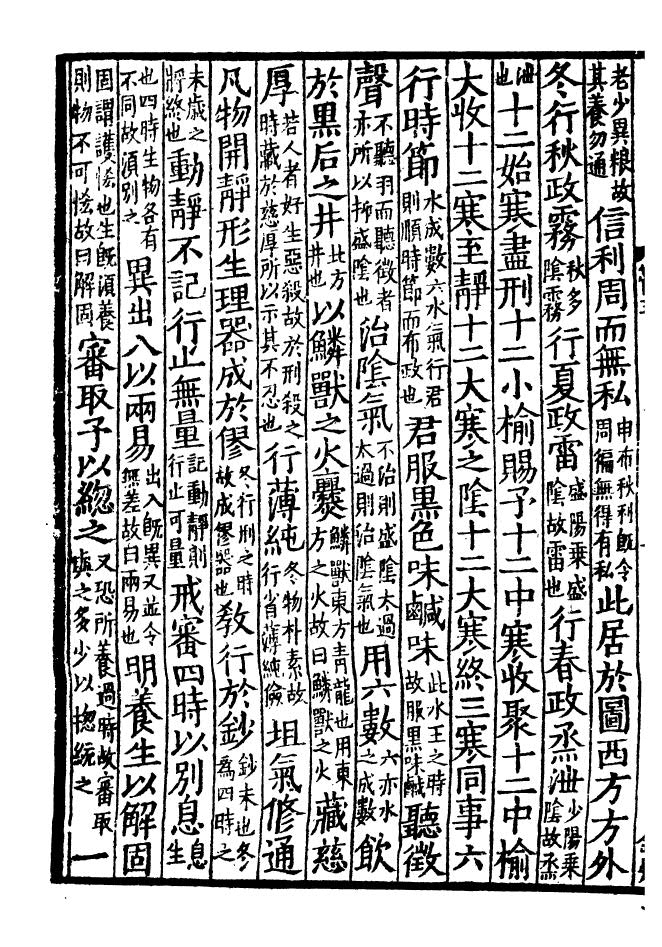 老少異粮故其養勿通信利周而無私申布秋利旣令周徧無得有私此居於圖西方方外
冬行秋政霧秋多陰霧行夏政雷盛陽乘盛陰故雷也行春政烝泄少陽乘陰故烝
泄也十二始寒盡刑十二小榆賜予十二中寒收聚十二中榆
大收十二寒至靜十二大寒之陰十二大寒終三寒同事六
行時節水成數六水氣行君則順時節而布政也君服黑色味鹹味此水王之時故服黑味鹹聽徵
聲不聽羽而聽徵者亦所以抑盛陰也治陰氣不治則盛陰太過太過則治陰氣也用六數六亦水之成數飲
於黑后之井北方井也以鱗獸之火爨鱗獸東方青龍也用東方之火故曰鱗獸之火藏慈
厚若人者好生惡殺故於刑殺之時藏於慈厚所以示其不忍也行薄純冬物朴素故行省薄純儉坦氣修通
凡物開靜形生理器成於僇冬行刑之時故成僇器也敎行於鈔鈔末也冬爲四時之
末歲之將終也動靜不記行止無量記動靜則行止可量戒審四時以別息息生
也四時生物各有不同故須別之異出入以兩易出入旣異又並令無差故曰兩易也明養生以解固
固謂護悋也生旣須養則物不可悋故曰解固審取予以緫之又恐所養過時故審取與之多少以揔統之一